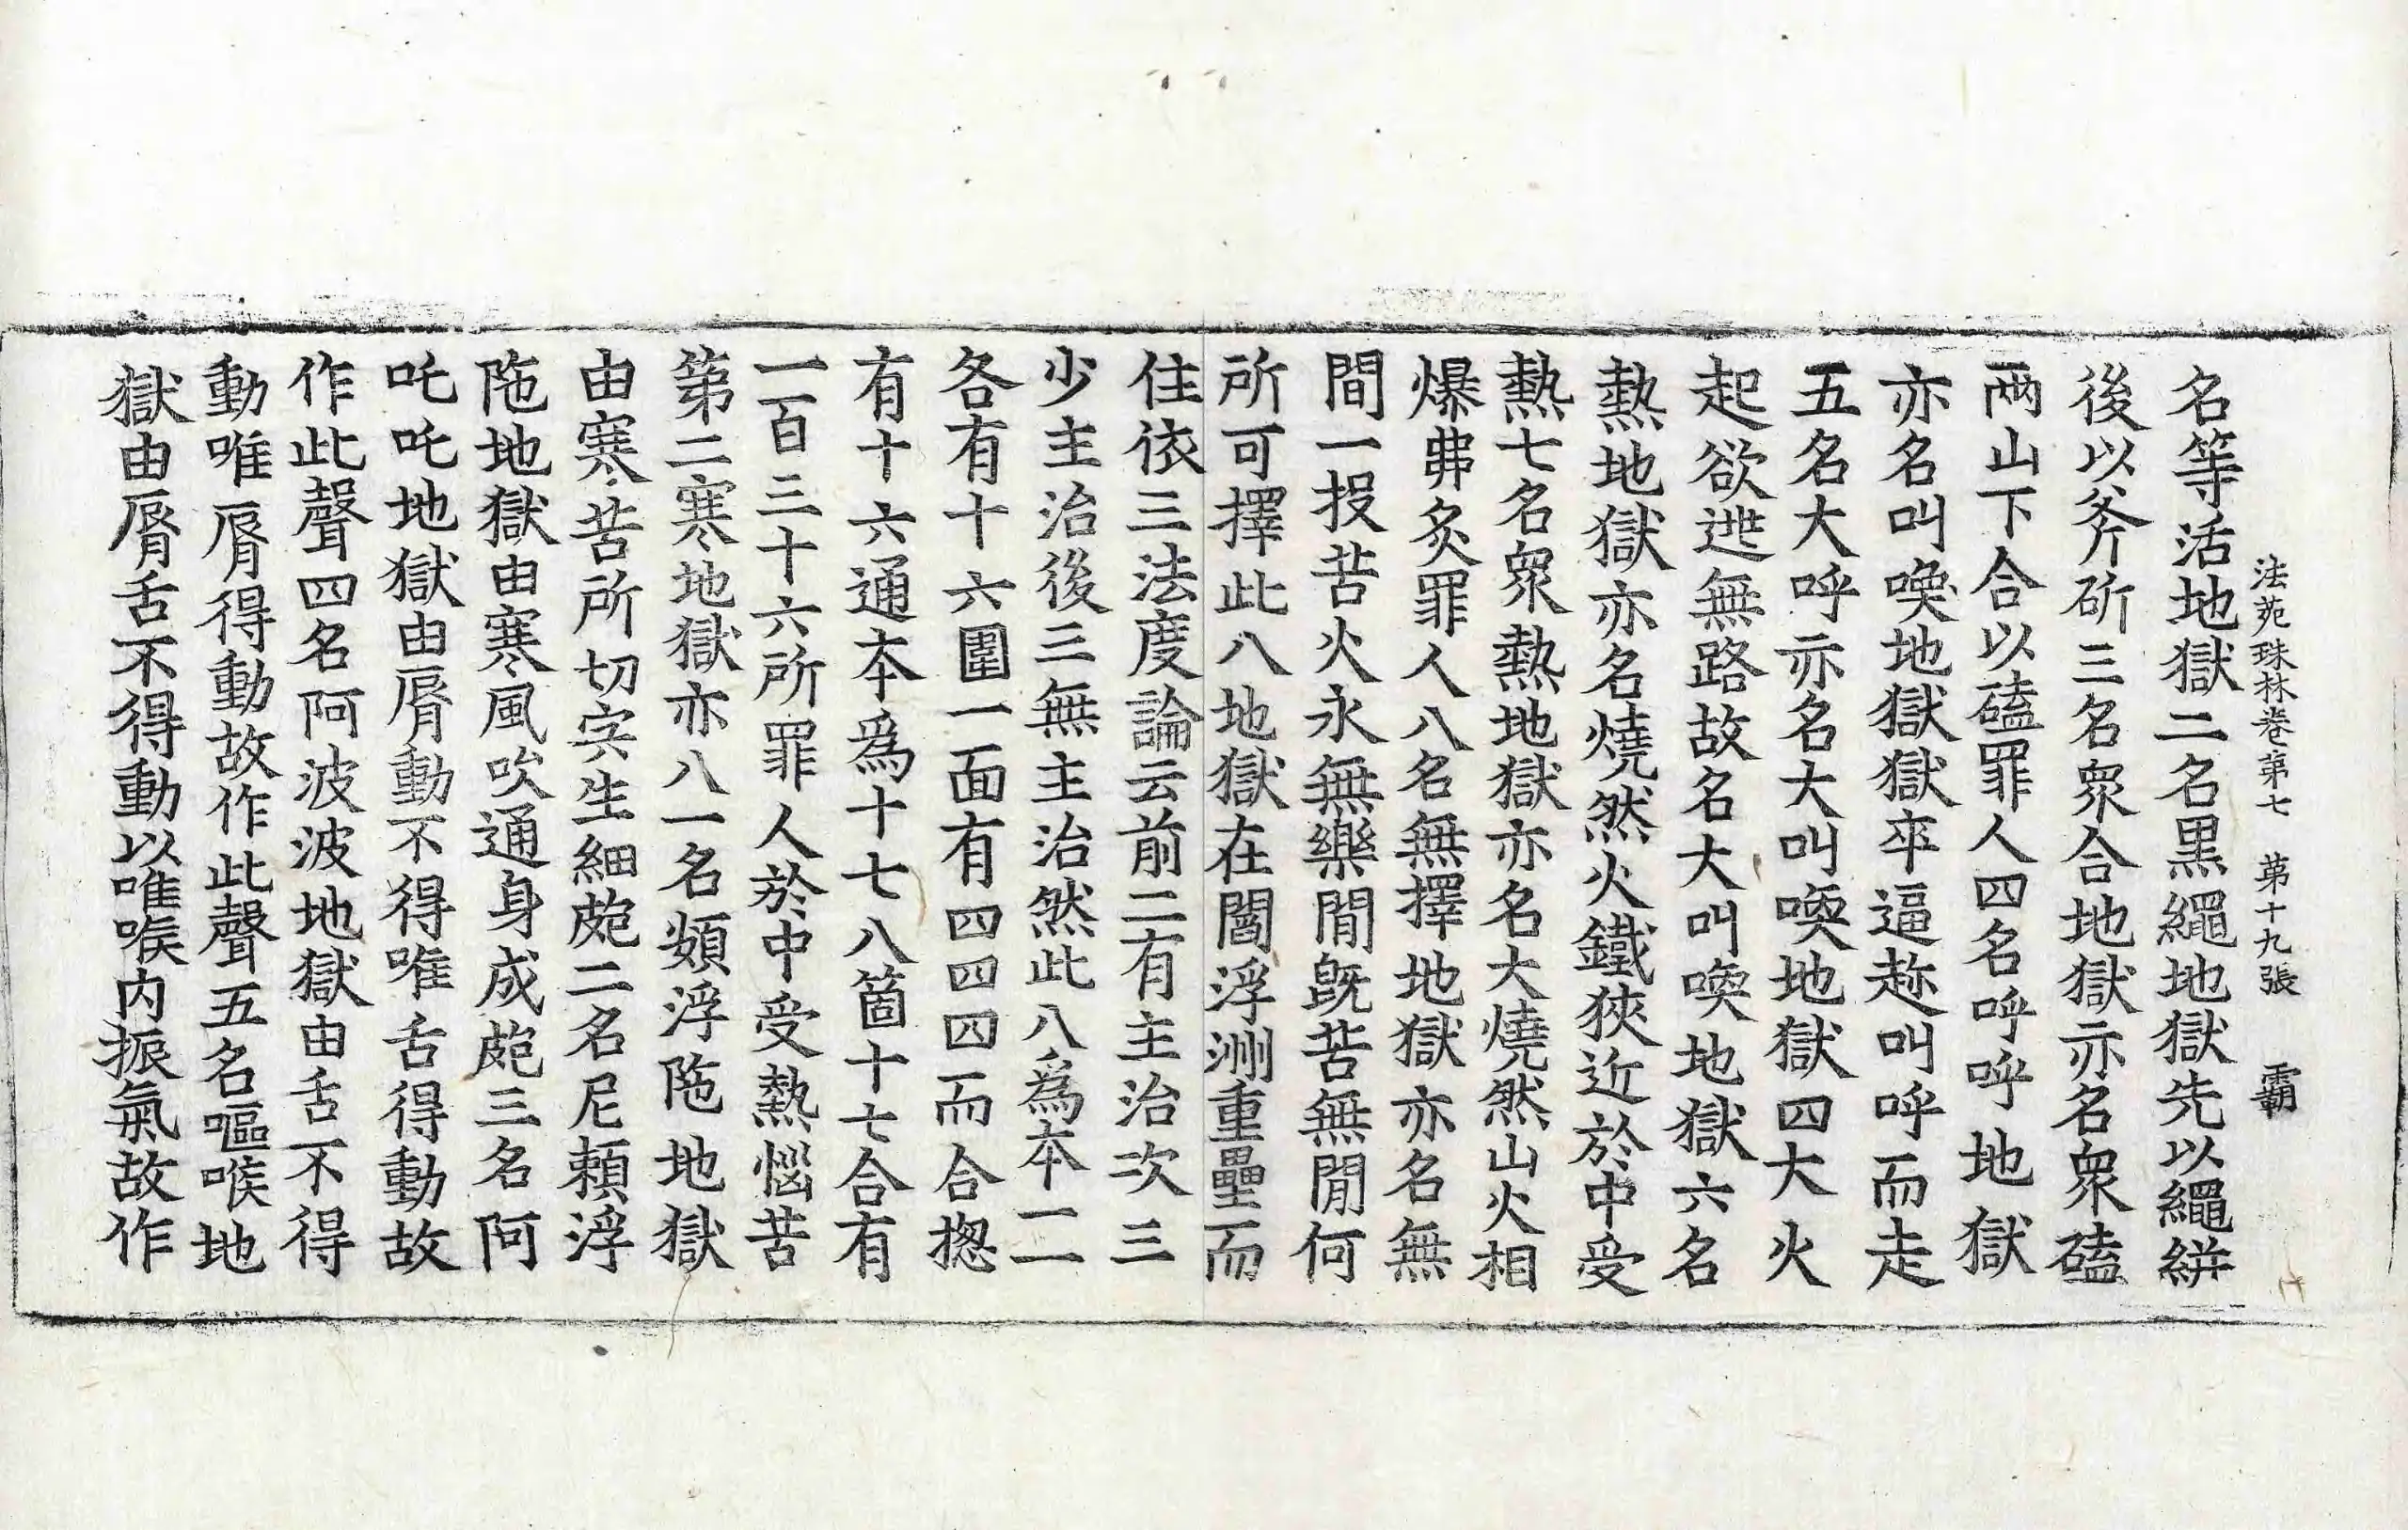 法苑珠林卷第七　第十九張　霸
名等活地獄二名黑繩地獄先以繩絣
後以斧斫三名衆合地獄亦名衆磕
兩山下合以磕罪人四名呼呼地獄
亦名叫喚地獄獄卒逼趂叫呼而走
五名大呼亦名大叫喚地獄四大火
起欲迯無路故名大叫喚地獄六名
熱地獄亦名燒然火鐵狹近於中受
熱七名衆熱地獄亦名大燒然山火相
爆弗炙罪人八名無擇地獄亦名無
間一投苦火永無樂閒旣苦無閒何
所可擇此八地獄在閻浮洲重壘而
住依三法度論云前二有主治次三
少主治後三無主治然此八爲本一一
各有十六圍一面有四四四而合揔
有十六通本爲十七八箇十七合有
一百三十六所罪人於中受熱惱苦
第二寒地獄亦八一名頞浮陁地獄
由寒苦所切宍生細皰二名尼賴浮
陁地獄由寒風吹通身成皰三名阿
吒吒地獄由脣動不得唯舌得動故
作此聲四名阿波波地獄由舌不得
動唯脣得動故作此聲五名嘔喉地
獄由脣舌不得動以唯喉内振氣故作